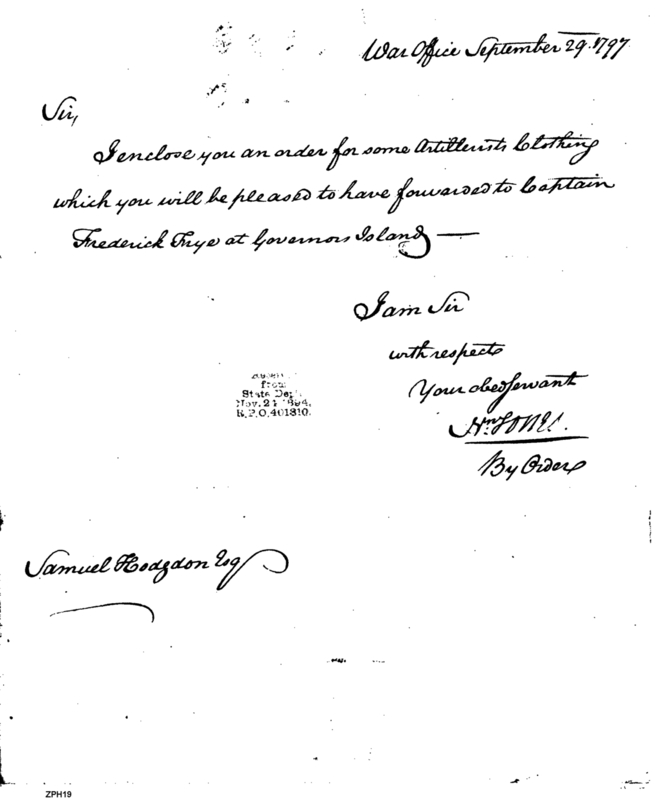 War Office September 29. 1797
Sir,
I enclose you an order for some Artillerists Clothing
which you will be pleased to have forwarded to Captain
Frederick Frye at Governors Island —
I am Sir
with respects
Your obed servant
Jones.
By Order
from
State Dep't
Nov. 21 1894,
R.P.O. 401810.
Samuel Hodgdon Esq
ZPH19